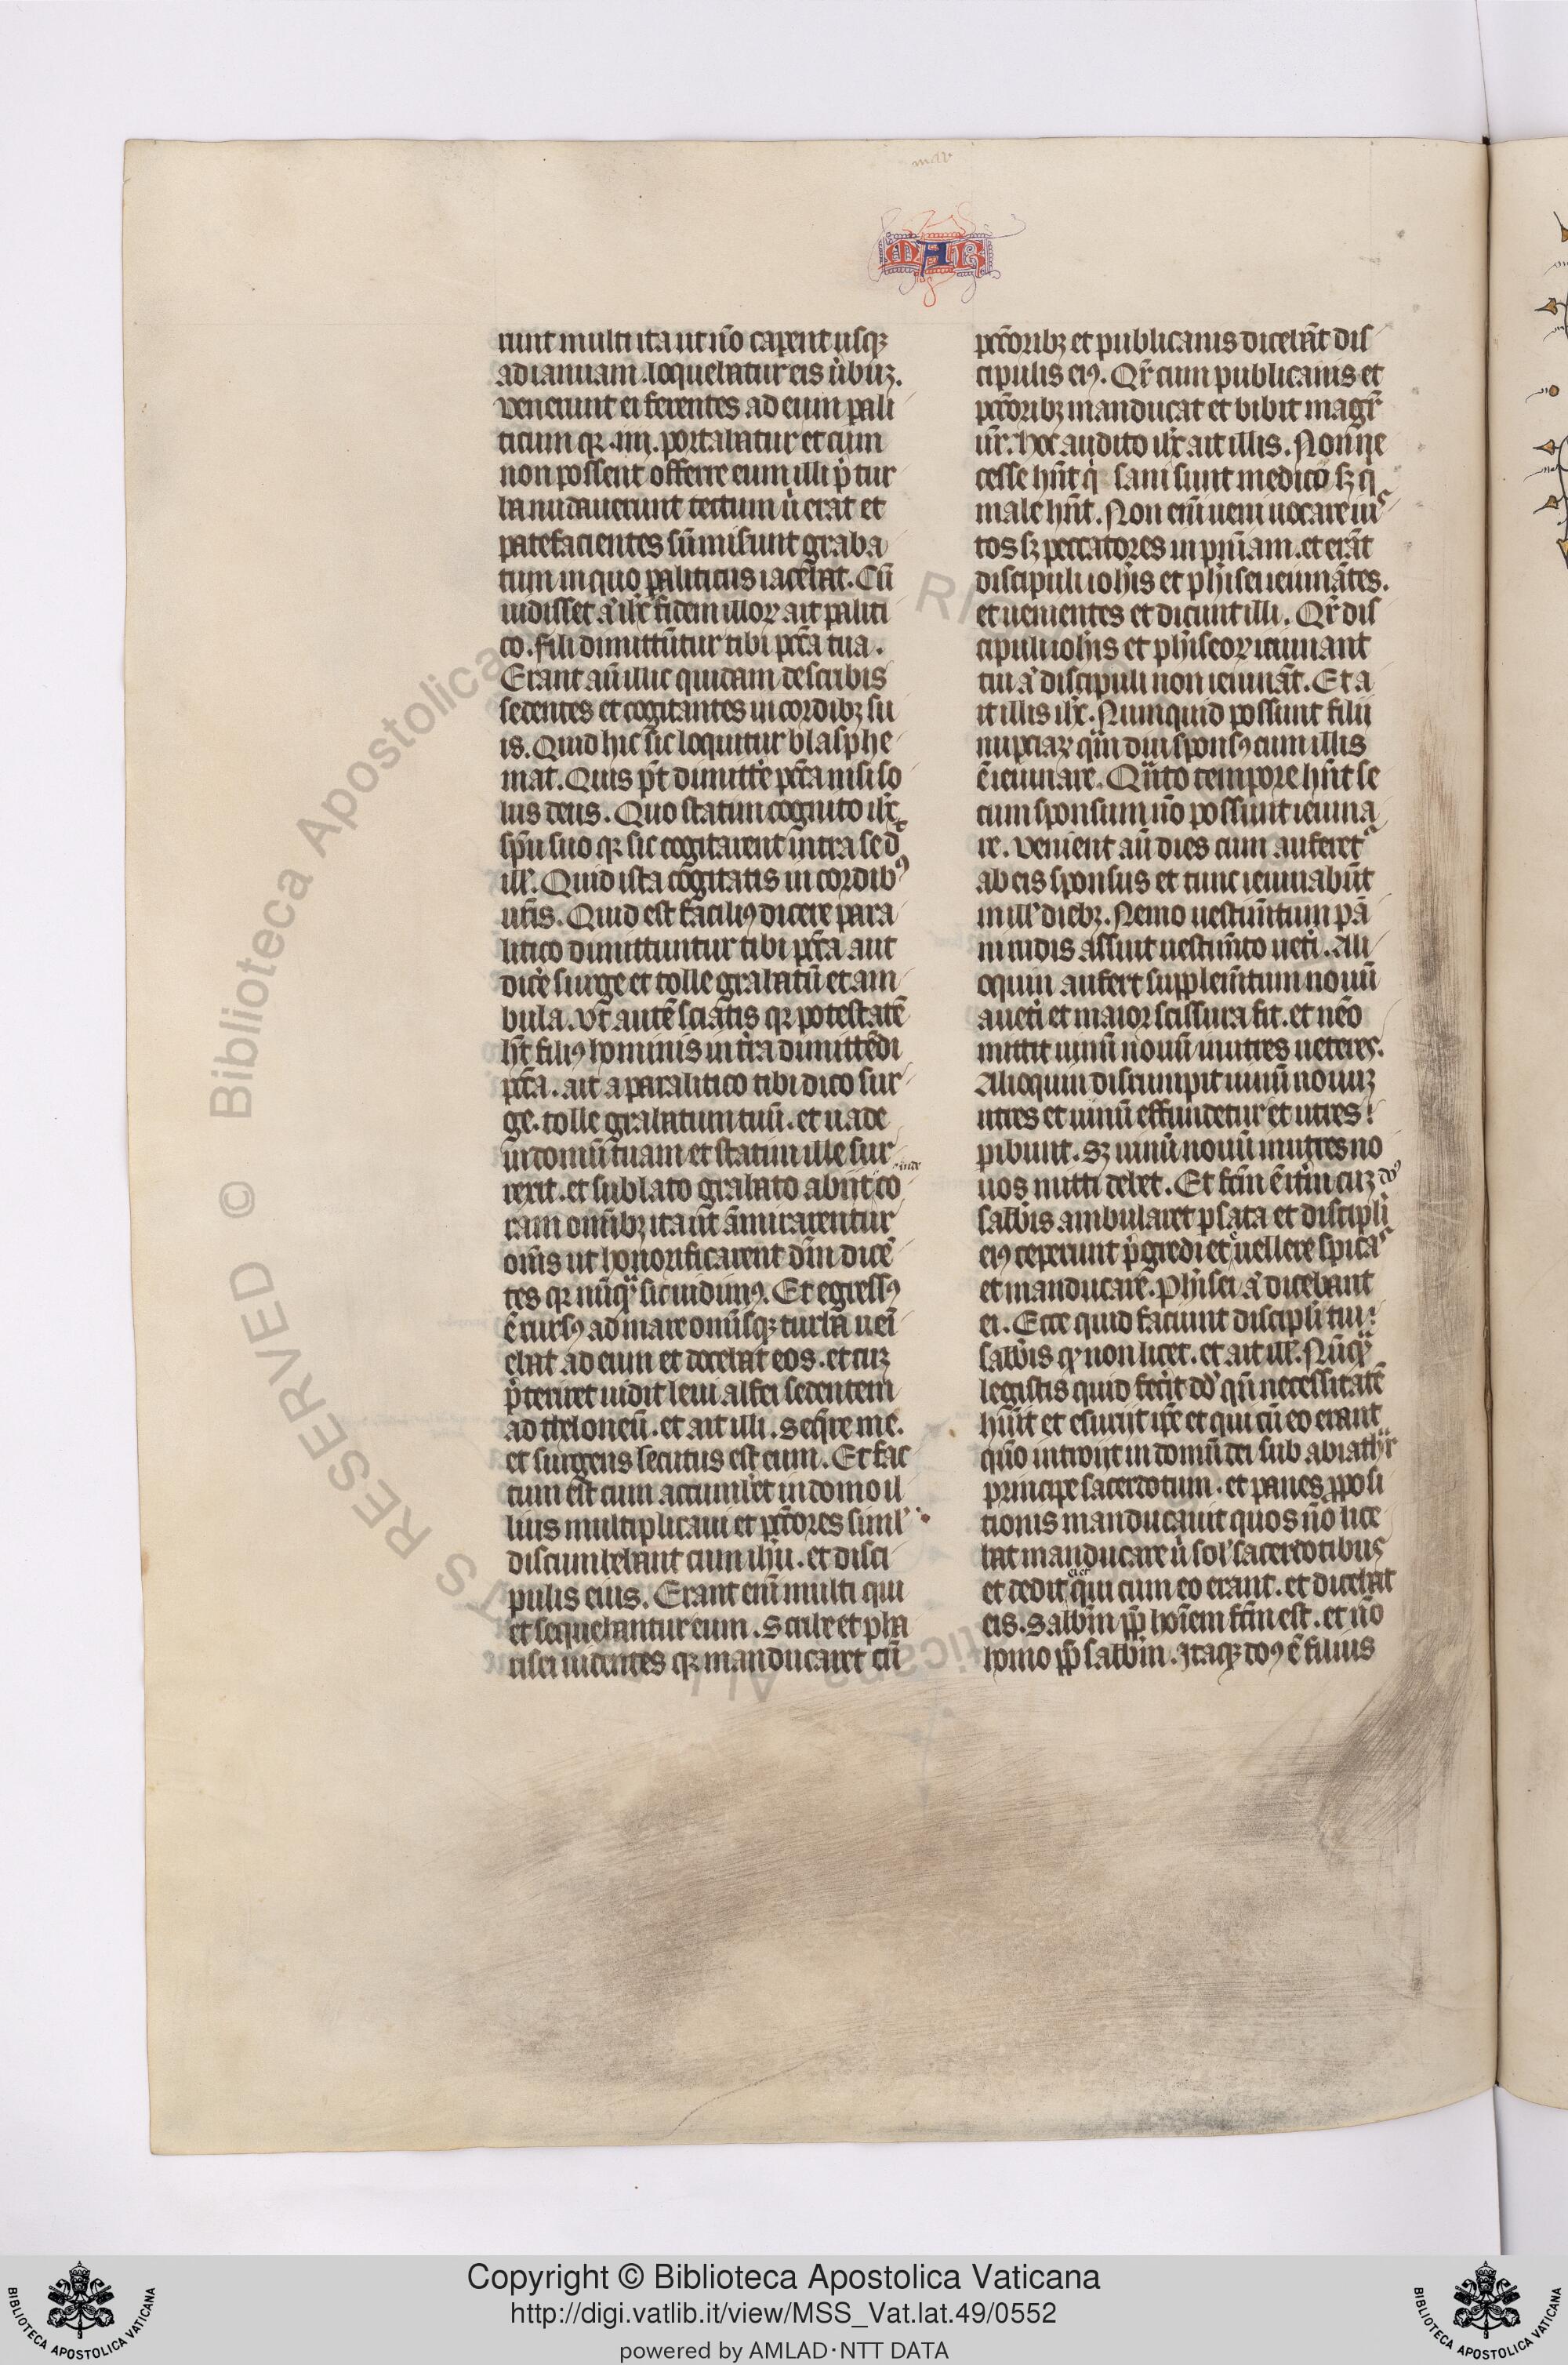 mar
MAR
runt multi ita ut nō caperent usq;
ad ianuam. loquebatur eis ůbuȝ.
Venerunt ei ferentes ad eum pali
ticum qȝ .iiii. portabatur et cum
non possent offerre eum illi p̄ tur
ba nudauerunt tectum ů erat et
patefacientes sūmisunt graba
tum in quo paliticus iacebat. Cū
uidisset aͣ ihc̄ fidem illoꝝ ait paliti
co. fili dimittūtur tibi pcc̄a tua.
Erant aū illic quidam de scribis
sedentes et cogitantes in cordibȝ su
is. Quid hic sic loquitur blasphe
mat. Quis pt̄ dimitte pcc̄a nisi so
lus deus. Quo statim cognito ihc̄
sp̄u suo qȝ sic cogitarent intra se d
ill'. Quid ista cōgitatis in cordibꝯ
uīs. Quid est faciliꝯ dicere para
litico dimittuntur tibi pcc̄a aut
dice surge et tolle grabatū et am
bula. Vt̄ autē sciatis qȝ potestatē
ht̄ filiꝯ hominis in tr̄a dimittēdi
pcc̄a. ait a paralitico tibi dico sur
ge. tolle grabatum tuū. et uade
in domū tuam et statim ille sur
rexit. et sublato grabato abiit co
inde
ram omībȝ ita ut āmirarentur
om̄s ut honorificarent dm̄ dicē
tes qȝ nūqͣ sic uidimꝯ. Et egressꝯ
ē rursꝯ ad mare omīsqȝ turba uei
ebat ad eum et docebat eos. et cuȝ
p̄teriret uidit leui alfei sedentem
ad theloneū. et ait illi. Seqͥre me.
et surgens secutus est eum. Et fac
tum est cum accumb̄et in domo il
lius multi plicani et pcc̄ores simˡ
discumbebant cum ihū. et disci
pulis eius. Erant enī multi qui
et sequebantur eum. Scribe et pha
risei uidentes qȝ manducaret cū
pcc̄oribȝ et publicanis dicebāt dis
cipulis eiꝯ. Qr̄ cum publicanis et
pcc̄oribȝ manducat et bibit magr̄
ur̄. Hoc audito ihc̄ ait illis. Non ne
cesse hn̄t qͥ sani sunt medico sȝ qͥ
male hn̄t. Non enī ueni uocare ius
tos sȝ peccatores in pn̄iam. et erāt
discipuli ioh̄is et ph̄isei ieiunātes.
et uenientes et dicunt illi. Qr̄ dis
cipuli ioh̄is et ph̄iseoꝝ ieiunant
tui aͣ discipuli non ieiunāt. Et a
it illis ihc̄. Numquid possunt filii
nupciaꝝ qͣmdiu sponsꝯ cum illis
ē ieiunare. Qͣnto tempore hn̄t se
cum sponsum nō possunt ieiuna
re. Venient aū dies cum auferet᷑
ab eis sponsus et tunc ieiunabūt
in ill' diebȝ. Nemo uestim̄tum pā
ni rudis assuit uestim̄to uet̄i. Ali
oquin aufert supplem̄tum nouū
a uet̄i et maior scissura fit. et nēo
mittit uinū nouū in utres ueteres.
Alioquin disrumpit uinū nouuȝ
utres et uinū effundetur et utres
pibunt. Sȝ uinū nouū in utres no
uos mitti debet. Et fc̄m ē it̄um cuȝ dn̄s
sabb̄is ambularet p sata et discipli
eiꝯ ceperunt p̄gredi et uellere spicas
et manducare. Ph̄isei aͣ dicebant
ei. Ecce quid faciunt discip̄li tui
sabb̄is qͩ non licet. et ait ill'. Nūqͣ
legistis quid fec̄it dd̄ qn̄ necessitatē
hūit et esuriit ip̄e et qui cū eo erant
quō introiit in domū dei sub abiathar
principe sacerdotum. et panes p̱posi
tionis manducauit quos nō lice
bat manducare n̄ sol' sacerdotibus
et dedit qui cum eo erant. et dicebat
ei et
eis. Sabb̄m pp̄ hoīem fc̄m est. et nō
homo pp̄ sabb̄m. Itaqȝ dn̄s ē filius
Copyright © Biblioteca Apostolica Vaticana
http://digi.vatlib.it/view/MSS_Vat.lat.49/0552
powered by AMLAD·NTT DATA
BIBLIOTECA APOSTOLICA VATICANA
BIBLIOTECA APOSTOLICA VATICANA